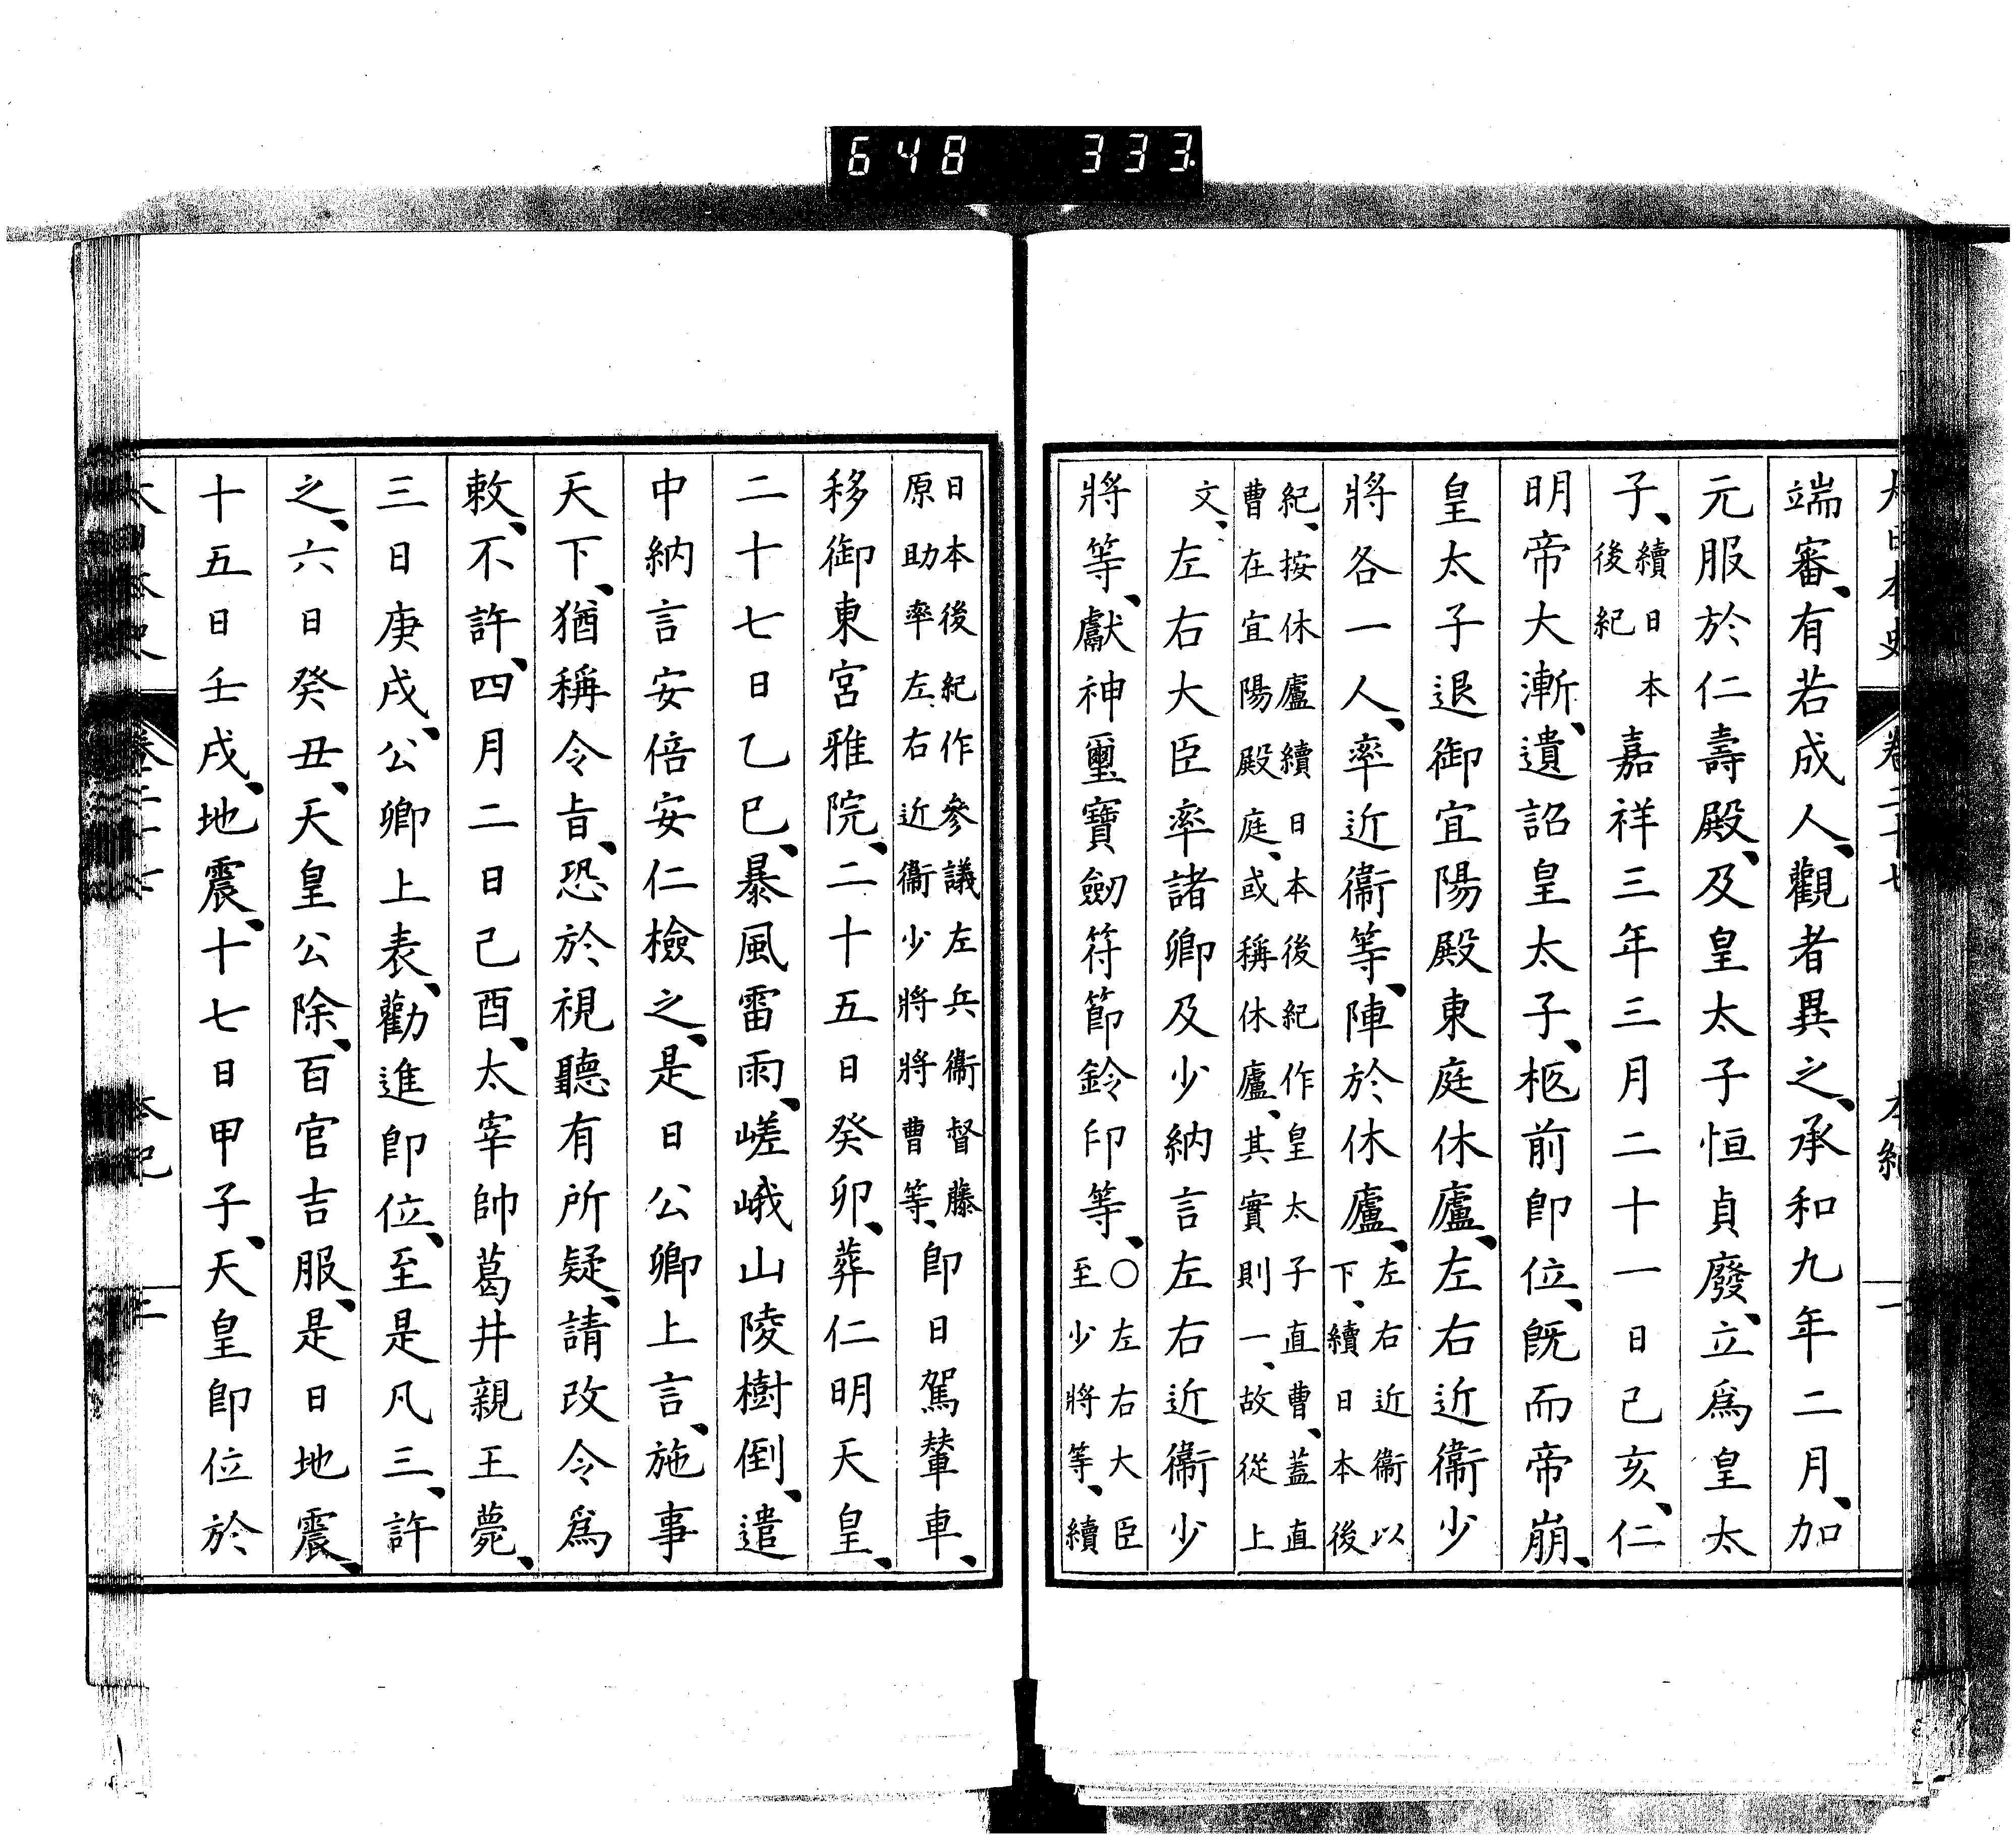 大日本史 卷二十七 本紀 一
端審、有若成人、觀者異之、承和九年二月、加
元服於仁壽殿、及皇太子恒貞廢、立爲皇太
子、續日本後紀嘉祥三年三月二十一日己亥、仁
明帝大漸、遺詔皇太子、柩前卽位、既而帝崩、
皇太子退御宜陽殿東庭休廬、左右近衞少
將各一人、率近衞等、陣於休廬、左右近衞以下、續日本後
紀、按休廬續日本後紀作皇太子直曹、蓋直曹在宜陽殿庭、或稱休廬、其實則一、故從上
文、左右大臣率諸卿及少納言左右近衞少
將等、獻神璽寶劒符節鈴印等、〇左右大臣至少將等、續
日本後紀作參議左兵衞督藤原助率左右近衞少將將曹等、卽日駕輦車、
移御東宮雅院、二十五日癸卯、葬仁明天皇、
二十七日乙巳、暴風雷雨、嵯峨山陵樹倒、遣
中納言安倍安仁檢之、是日公卿上言、施事
天下、猶稱令旨、恐於視聽有所疑、請改令爲
敕、不許、四月二日己酉、太宰帥葛井親王薨、
三日庚戌、公卿上表、勸進卽位、至是凡三、許
之、六日癸丑、天皇公除、百官吉服、是日地震、
十五日壬戌、地震、十七日甲子、天皇卽位於
大日本史 卷二十七 本紀 二
648 333